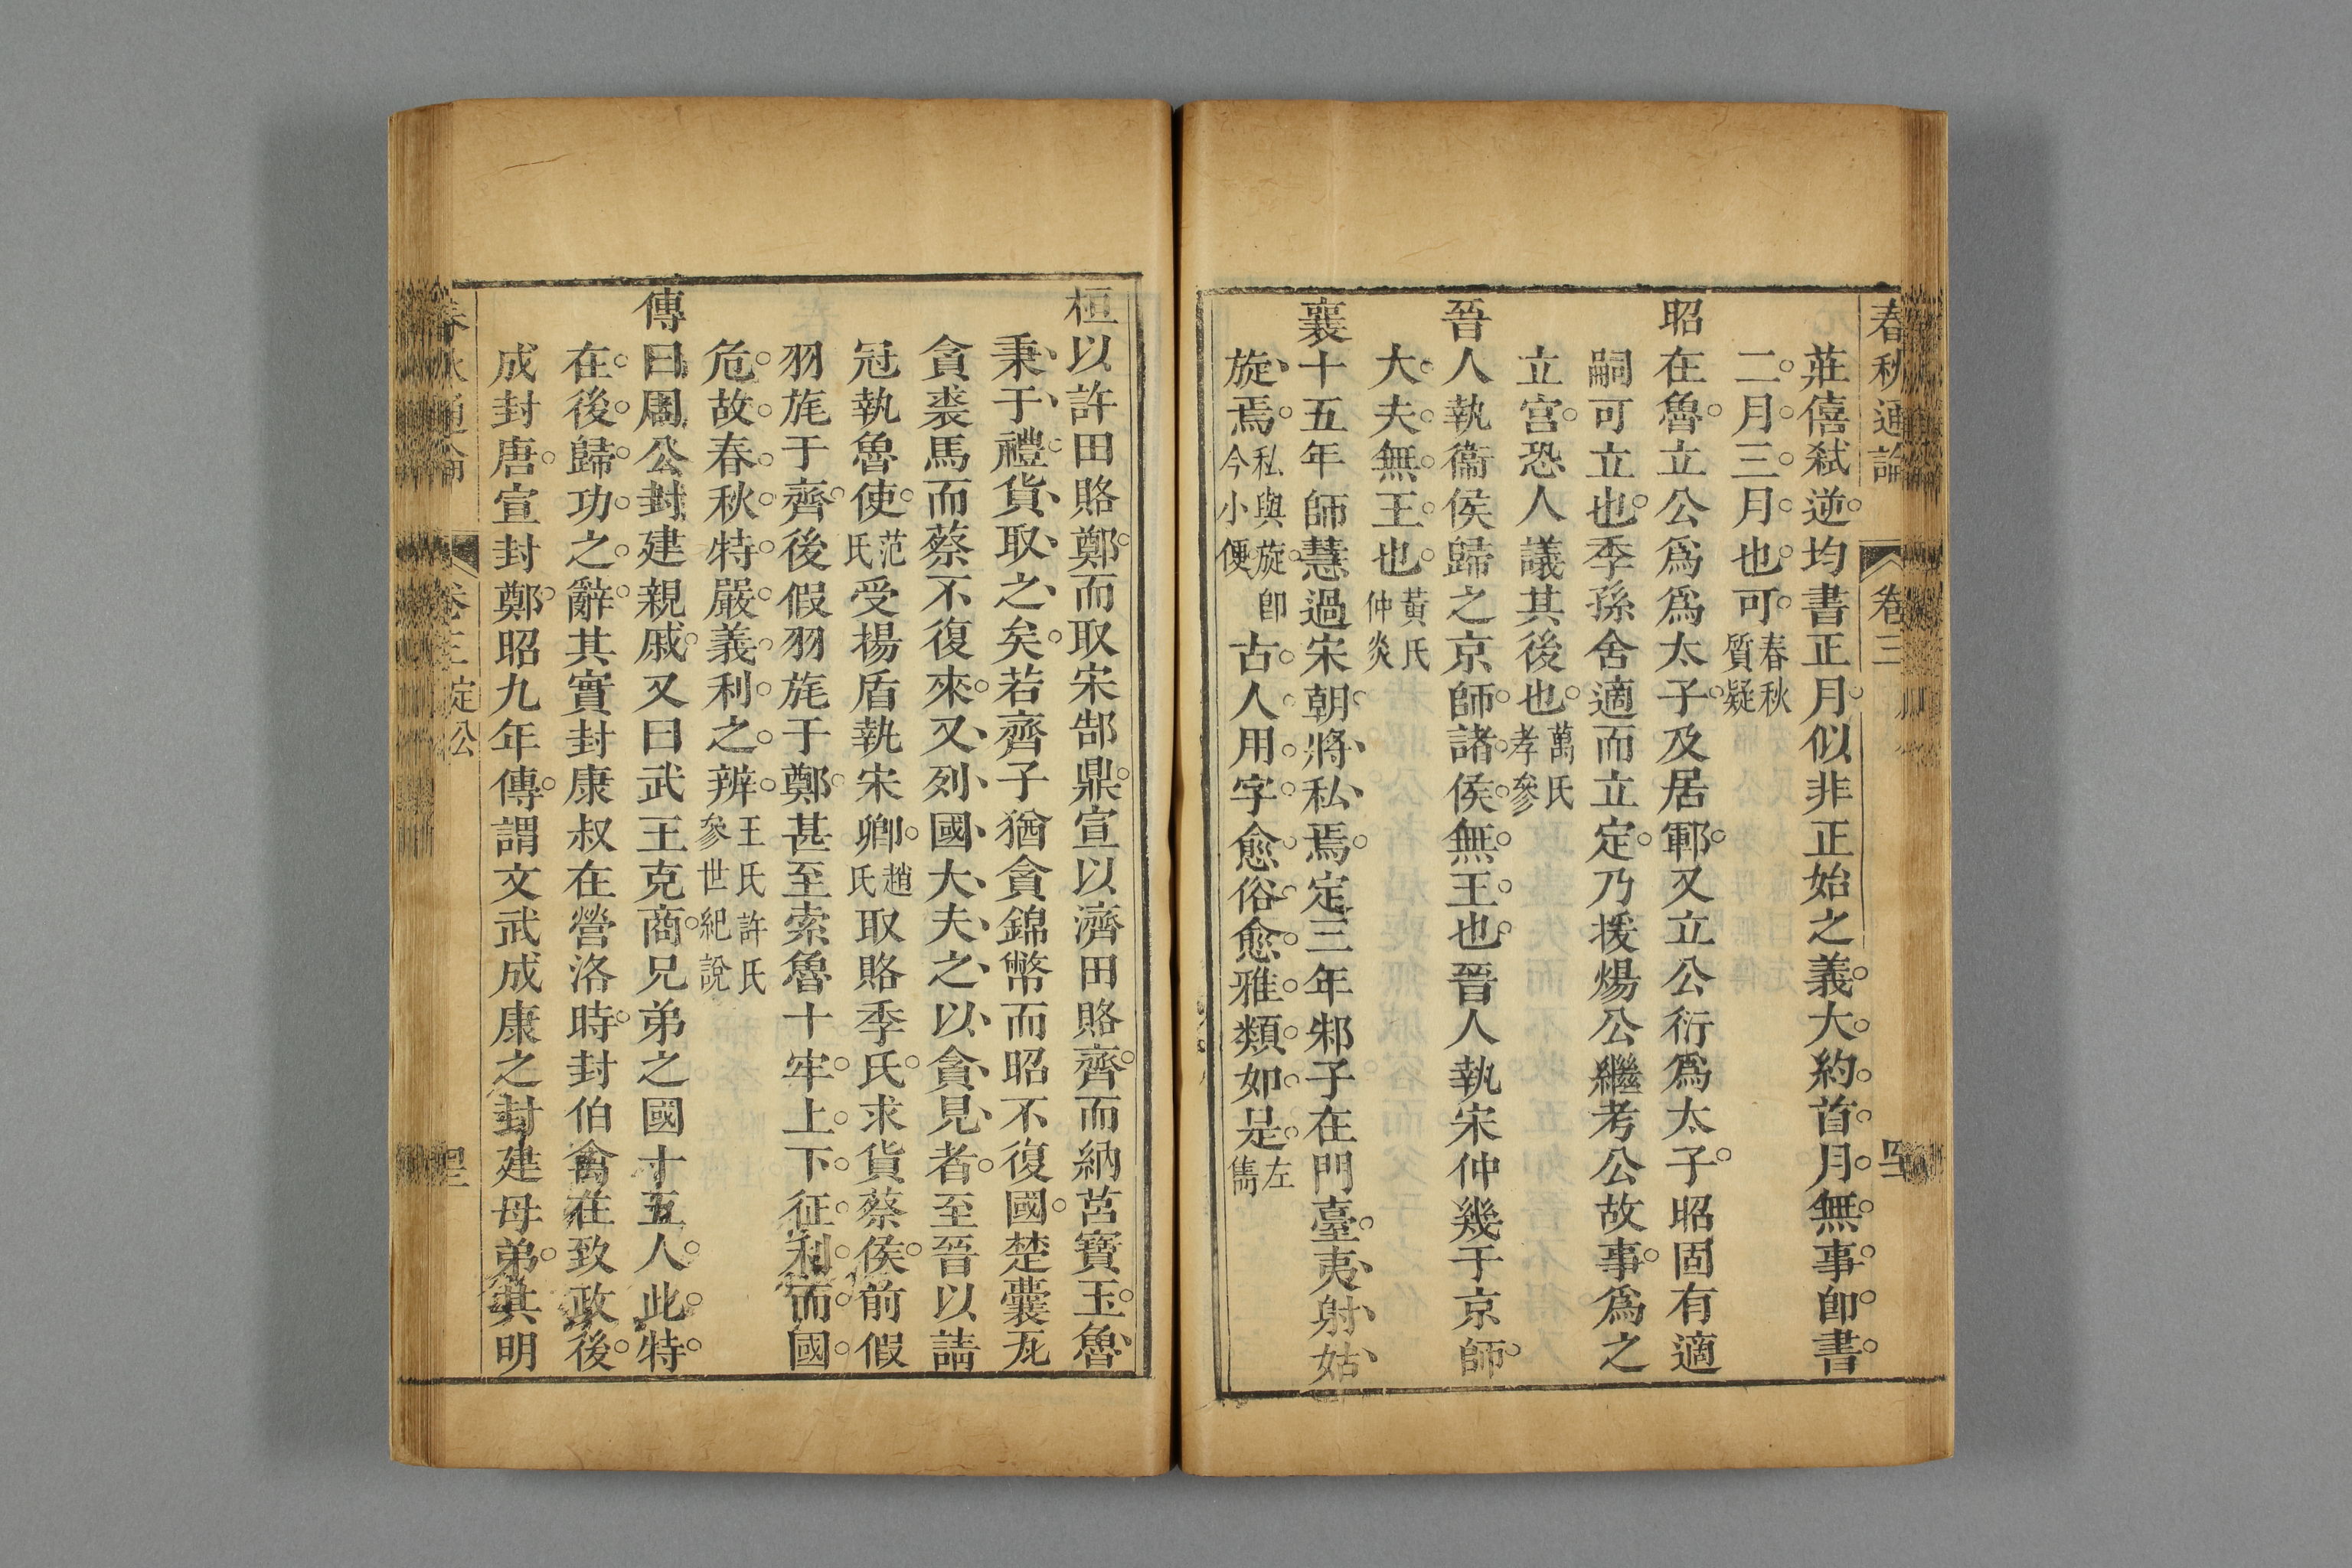 春秋通論 卷三
莊僖弑逆均書正月似非正始之義大約首月無事卽書
二月三月也可春秋質疑
昭在魯立公爲爲太子及居鄆又立公衍爲太子昭固有適
嗣可立也季孫舍適而立定乃援煬公繼考公故事爲之
立宮恐人議其後也萬氏孝參
晉人執衞侯歸之京師諸侯無王也晉人執宋仲幾于京師
大夫無王也黃氏仲炎
襄十五年師慧過宋朝將私焉定三年邾子在門臺夷射姑
旋焉私與旋卽今小便古人用字愈俗愈雅類如是左雋
桓以許田賂鄭而取宋郜鼎宣以濟田賂齊而納莒寶玉魯
秉于禮貨取之矣若齊子猶貪錦幣而昭不復國楚囊瓦
貪裘馬而蔡不復來又列國大夫之以貪見者至晉以請
冠執魯使范氏受揚盾執宋卿趙氏取賂季氏求貨蔡侯前假
羽旄于齊後假羽旄于鄭甚至索魯十牢上下征利而國
危故春秋特嚴義利之辨王氏許氏參世紀說
傳曰周公封建親戚又曰武王克商兄弟之國十五人此特
在後歸功之辭其實封康叔在營洛時封伯禽在致政後
成封唐宣封鄭昭九年傳謂文武成康之封建母弟其明
春秋通論 卷三 定公